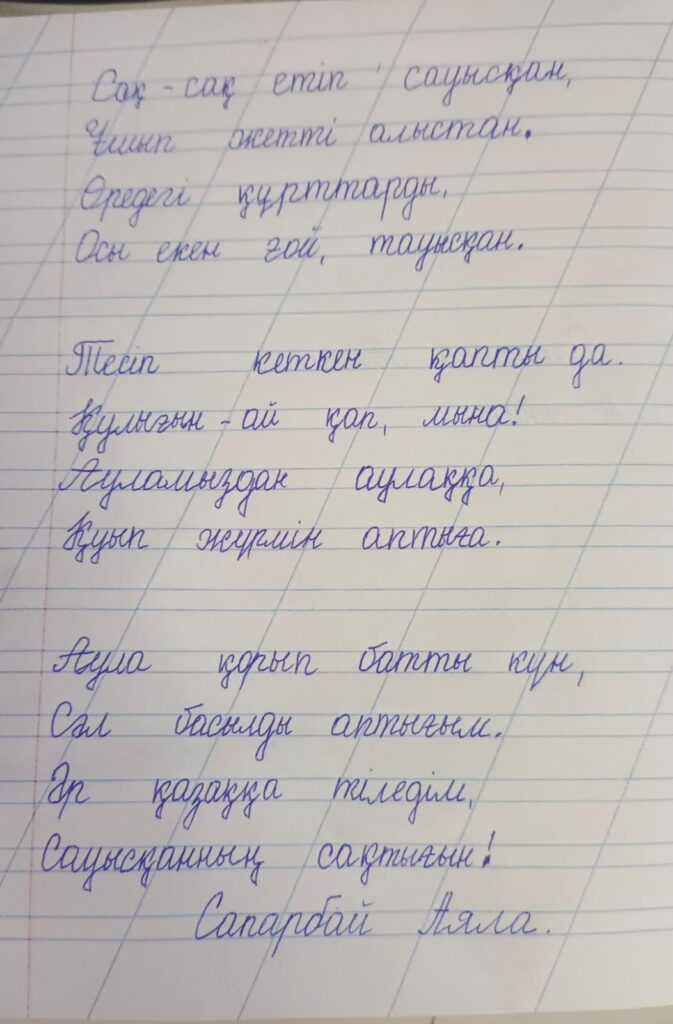 Сақ-сақ етіп сауысқан,
Ұшып жетті алыстан.
Өредегі құрттарды,
Осы екен ғой, тауысқан.
Тесіп кеткен қапты да.
Құлығын-ай қап, мына!
Ауламыздан аулаққа,
Қуып жүрмін аптыға.
Аула қорып батты күн,
Сәл басылды аптығым.
Әр қазаққа тіледім,
Сауысқанның сақтығын!
Сапарбай Аяла.